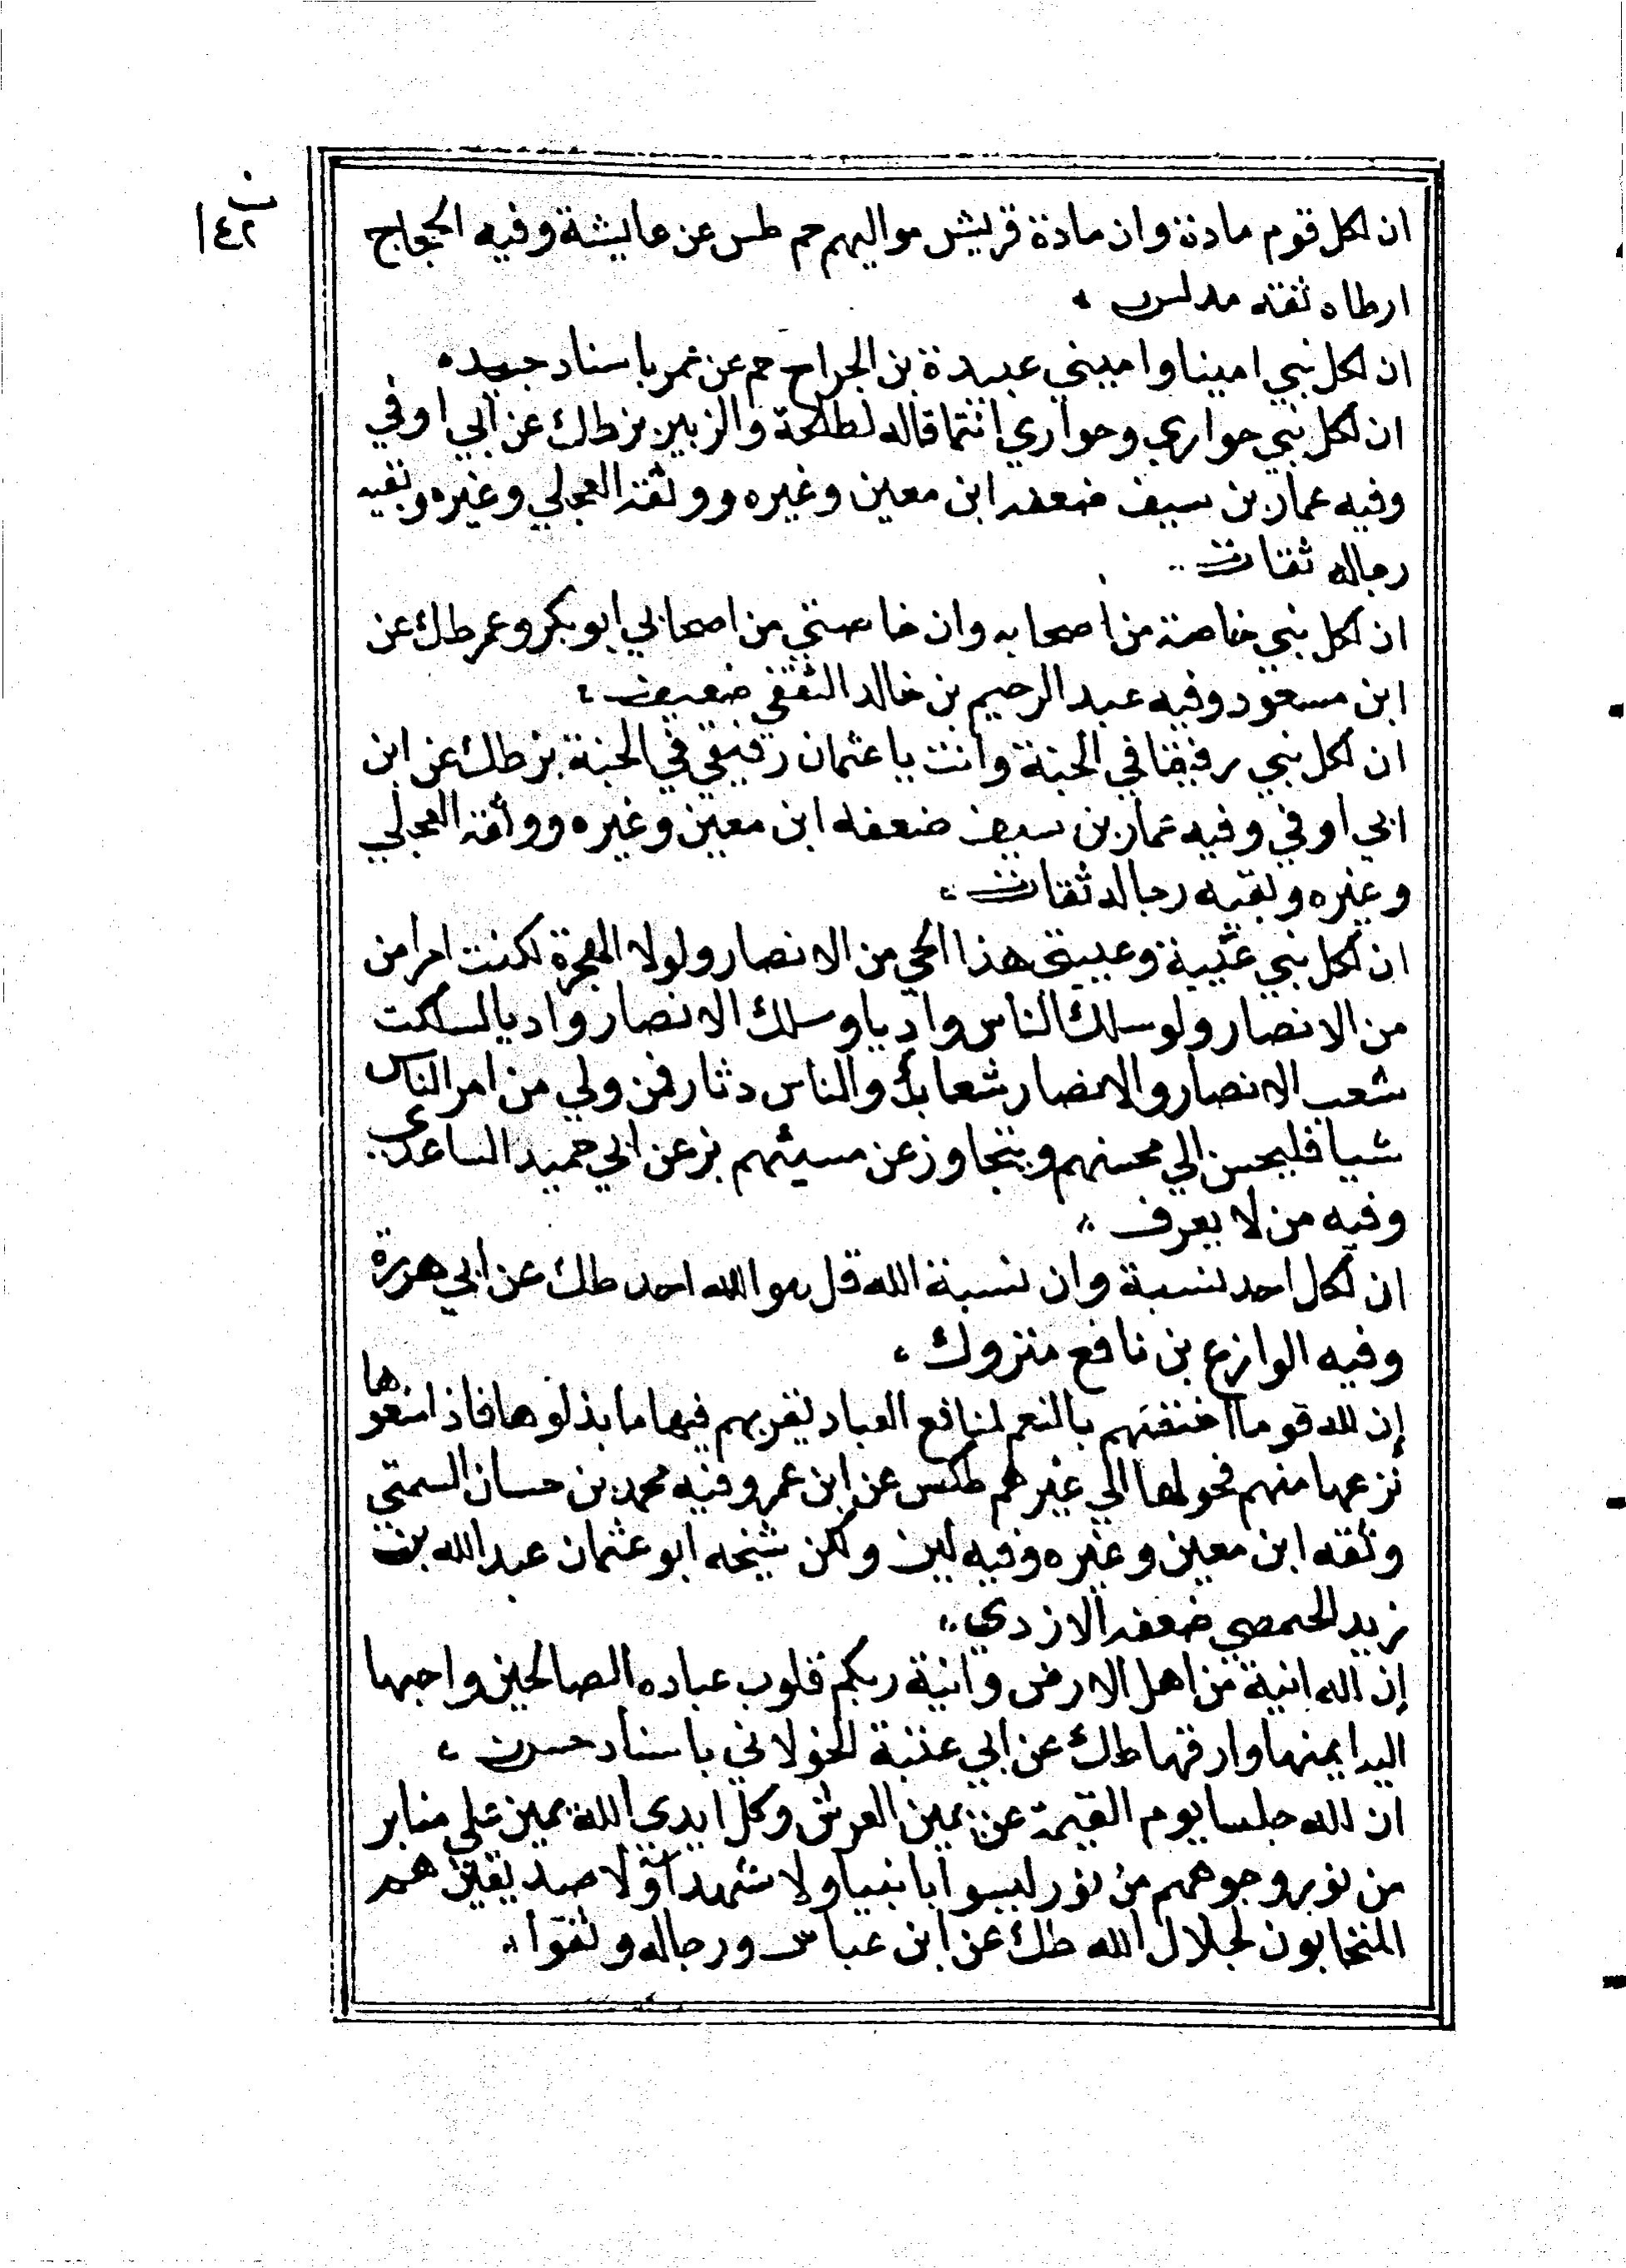 ن
١٤٢
ان لكل قوم مادة وان مادة قريش مواليهم حم طس عن عايشة وفيه الحجاج
ارطاه ثقته مدلس
ان لكل نبي امينا واميني عبيدة بن الجراح حم عن عمر باسناد جيده
ان لكل نبي حواري وحواري انتما قاله لطلحة والزبير بز طك عن ابي اوفي
وفيه عمار بن سيف ضعفه ابن معين وغيره ووثقه العجلي وغيره وبقيه
رجاله ثقات
ان لكل نبي خاصة من اصحابه وان خاصتي من اصحابي ابو بكر وعمر طك عن
ابن مسعود وفيه عبد الرحيم بن خالد الثقفي ضعيف
ان لكل نبي رفيقا في الجنة وانت يا عثمان رفيقي في الجنة بز طك عن ابن
ابي اوفي وفيه عمار بن سيف ضعفه ابن معين وغيره ووثقه العجلي
وغيره وبقيه رجاله ثقات
ان لكل نبي عيبة وعيبتي هذا الحي من الانصار ولولا الهجرة لكنت امرا من
من الانصار ولو سلك الناس واديا وسلك الانصار واديا لسلكت
شعب الانصار والانصار شعابك والناس دثار فمن ولي من امر الناس
شيا فليحسن الي محسنهم ويتجاوز عن مسيئهم بز عن ابي حميد الساعدي
وفيه من لا يعرف
ان لكل احد نسبة وان نسبة الله قل هو الله احد طك عن ابي هريرة
وفيه الوازع بن نافع متروك
إن لله قوما اختصهم بالنعم لمنافع العباد يقربهم فيها ما بذلوها فاذا منعوها
نزعها منهم فحولها الي غيرهم طكس عن ابن عمر وفيه محمد بن حسان السمتي
وثقه ابن معين وغيره وفيه لين ولكن شيخه ابو عثمان عبد الله بن
زيد الحمصي ضعفه الازدي
إن الله انية من اهل الارض وانية ربكم قلوب عباده الصالحين واحبها
اليه اليمنها وارقها طك عن ابي عنبة الخولاني باسناد حسن
ان لله جلسا يوم القيمة عن يمين العرش وكل ايدي الله يمين علي منابر
من نور وجوههم من نور ليسوا بانبيا ولا شهدا ولا صديقين هم
المتحابون لجلال الله طك عن ابن عباس ورجاله وثقوا